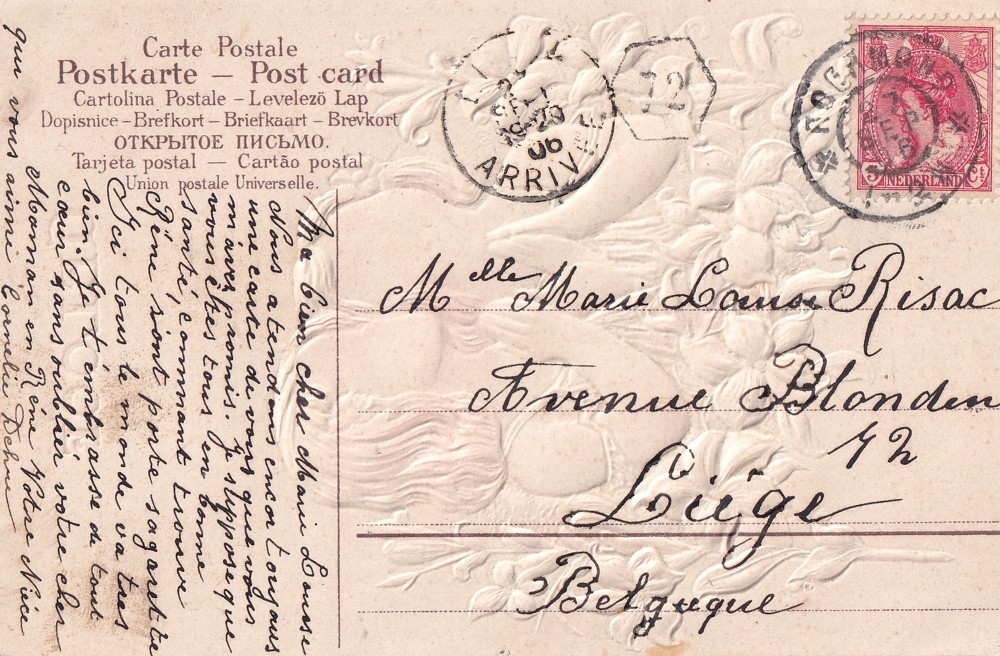 Carte Postale
Postkarte — Post card
Cartolina Postale – Levelező Lap
Dopisnice – Brefkort – Briefkaart – Brevkort
ОТКРЫТОЕ ПИСЬМО.
Tarjeta postal — Cartão postal
Union postale Universelle.
SEPT
19-20
06
ARRIVÉE
12
ROERMOND
7
SEP
6
5 Ct
NEDERLAND
Ma bien cher Marie Louise
Nous atendons encor toujours
une carte de vous que vous
m'avez promis. Je suppose que
vous êtes tous en bonne
santé, commant trouve
Réne sont porte sagarette
Ici tous le monde va tres
bien. Je t'embrasse de tout
cœur sans oublié votre cher
Maman en Réne Votre Nièce
qui vous aime Cornelie
Mlle Marie Louise Risac
Avenue Blonden
42
Liège
Belgique